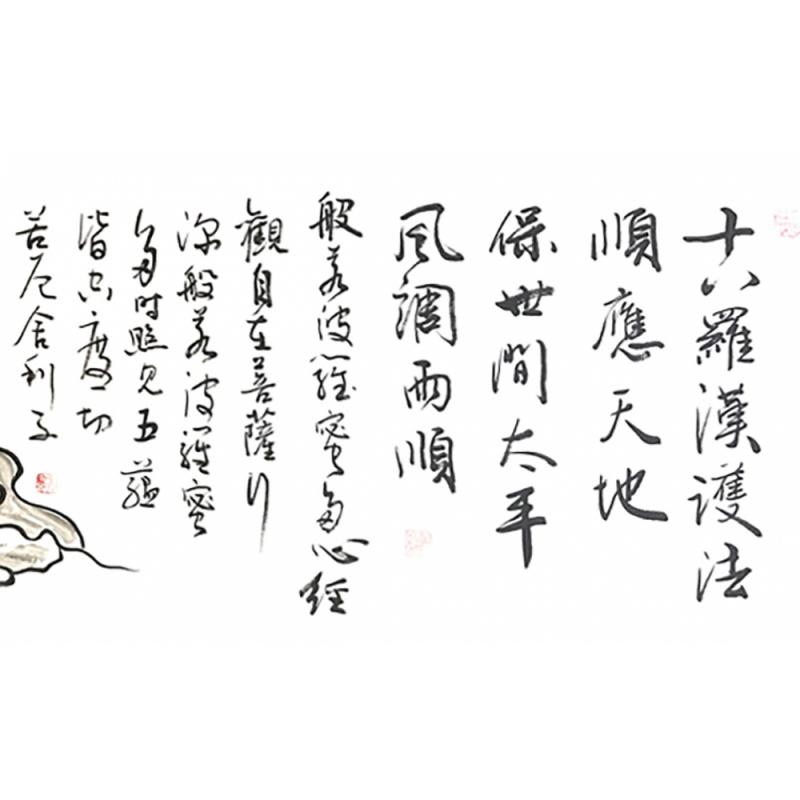 十八羅漢護法
順應天地
保世間太平
風調雨順
般若波羅蜜多心經
觀自在菩薩行
深般若波羅蜜
多時照見五蘊
皆空度一切
苦厄舍利子